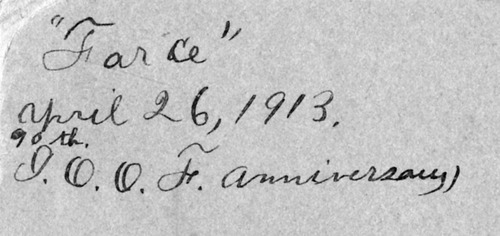 "Farce"
April 26, 1913.
90th.
I. O. O. F. Anniversary